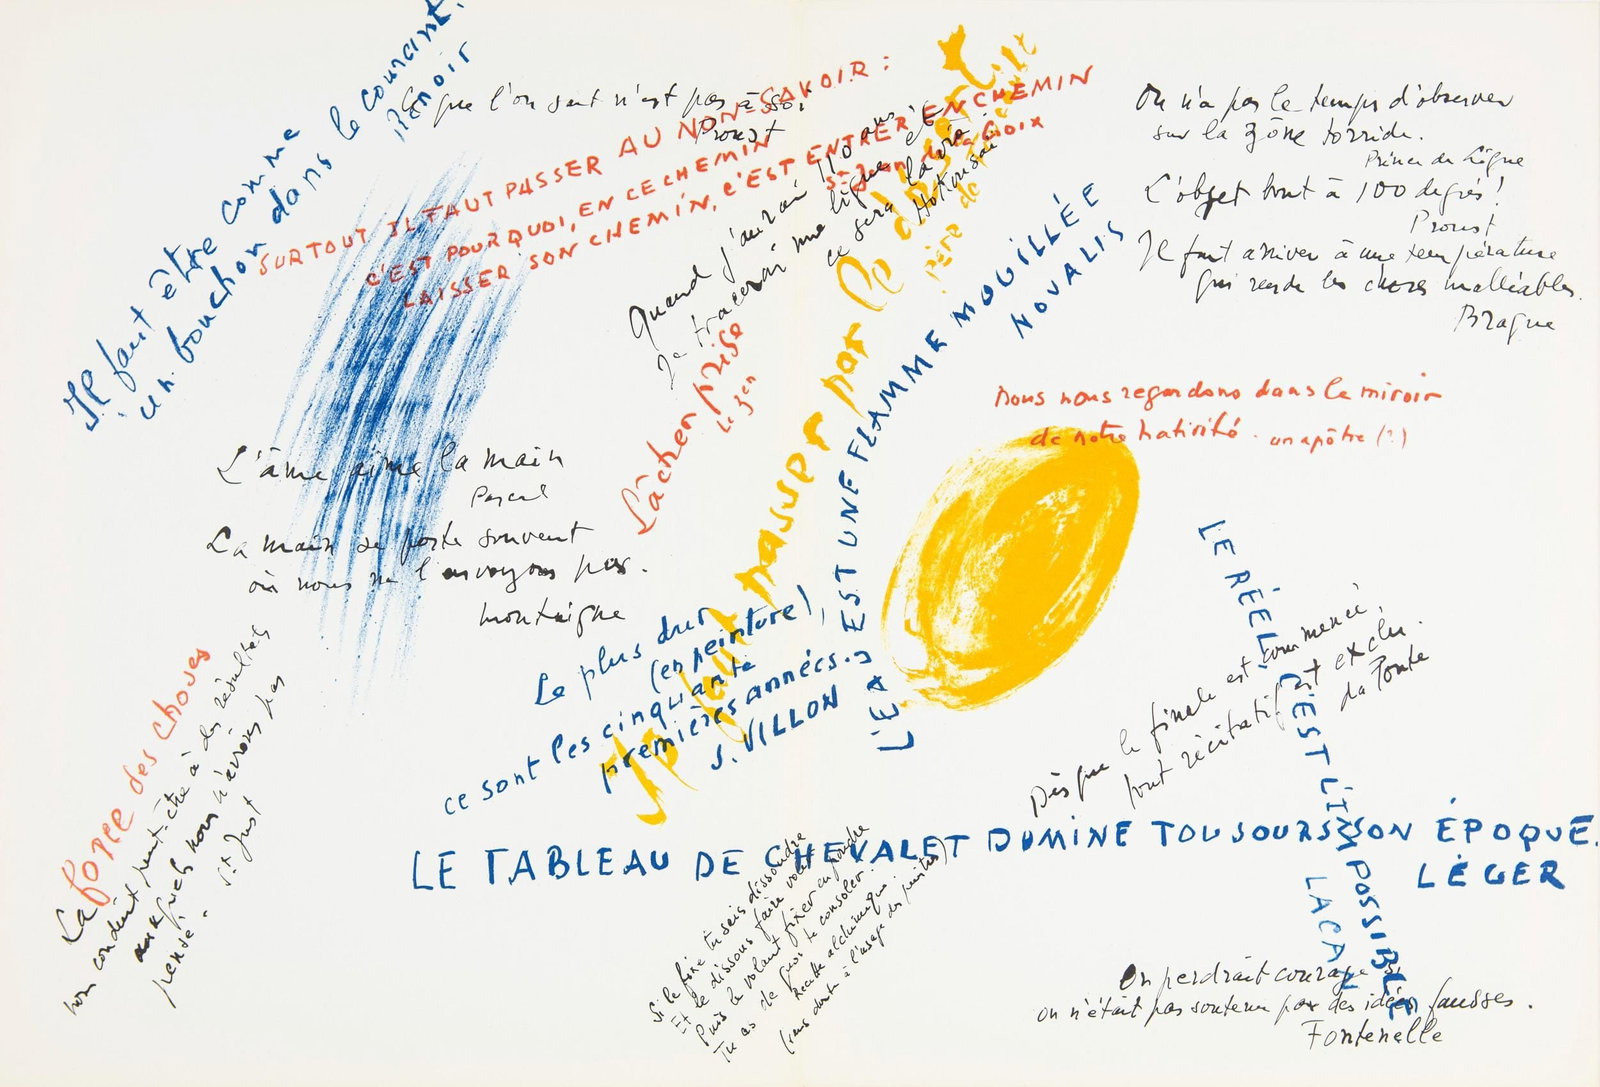 Il faut être comme
un bouchon dans le courant.
Renoir
Ce que l'on sait n'est pas à soi
Proust
SURTOUT IL FAUT PASSER AU NON-SAVOIR :
C'EST POURQUOI, EN CE CHEMIN
LAISSER SON CHEMIN, C'EST ENTRER EN CHEMIN
St Jean de la Croix
Quand j'aurai 110 ans
Je tracerai une ligne et
ce sera la vie
Hokusai
Il faut passer par le
Père de
On n'a pas le temps d'observer
sur la zône torride.
Prince de Ligne
L'objet bout à 100 degrés !
Proust
Il faut arriver à une température
qui rende les choses malléables.
Braque
L'EAU EST UNE FLAMME MOUILLÉE
NOVALIS
Lâcher prise
Le zen
nous nous regardons dans le miroir
de notre nativité. un apôtre (?)
L'âme aime la main
Pascal
La main se porte souvent
où nous ne l'envoyons pas.
Montaigne
Le plus dur
(en peinture),
ce sont les cinquante
premières années.
J. VILLON
LE RÉEL, C'EST L'IMPOSSIBLE
LACAN
Dès que le finale est commencé,
tout récitatif est exclu.
Da Ponte
La force des choses
nous conduit peut-être à des résultats
auxquels nous n'avions pas
pensé.
St Just
LE TABLEAU DE CHEVALET DOMINE TOUJOURS SON ÉPOQUE.
LÉGER
Si le fixe tu sais dissoudre
Et le dissous faire voler
Puis le volant fixer en poudre
Tu as de quoi te consoler.
Recette alchimique.
(sans doute à l'usage des peintres)
On perdrait courage si
on n'était pas soutenu par des idées fausses.
Fontenelle